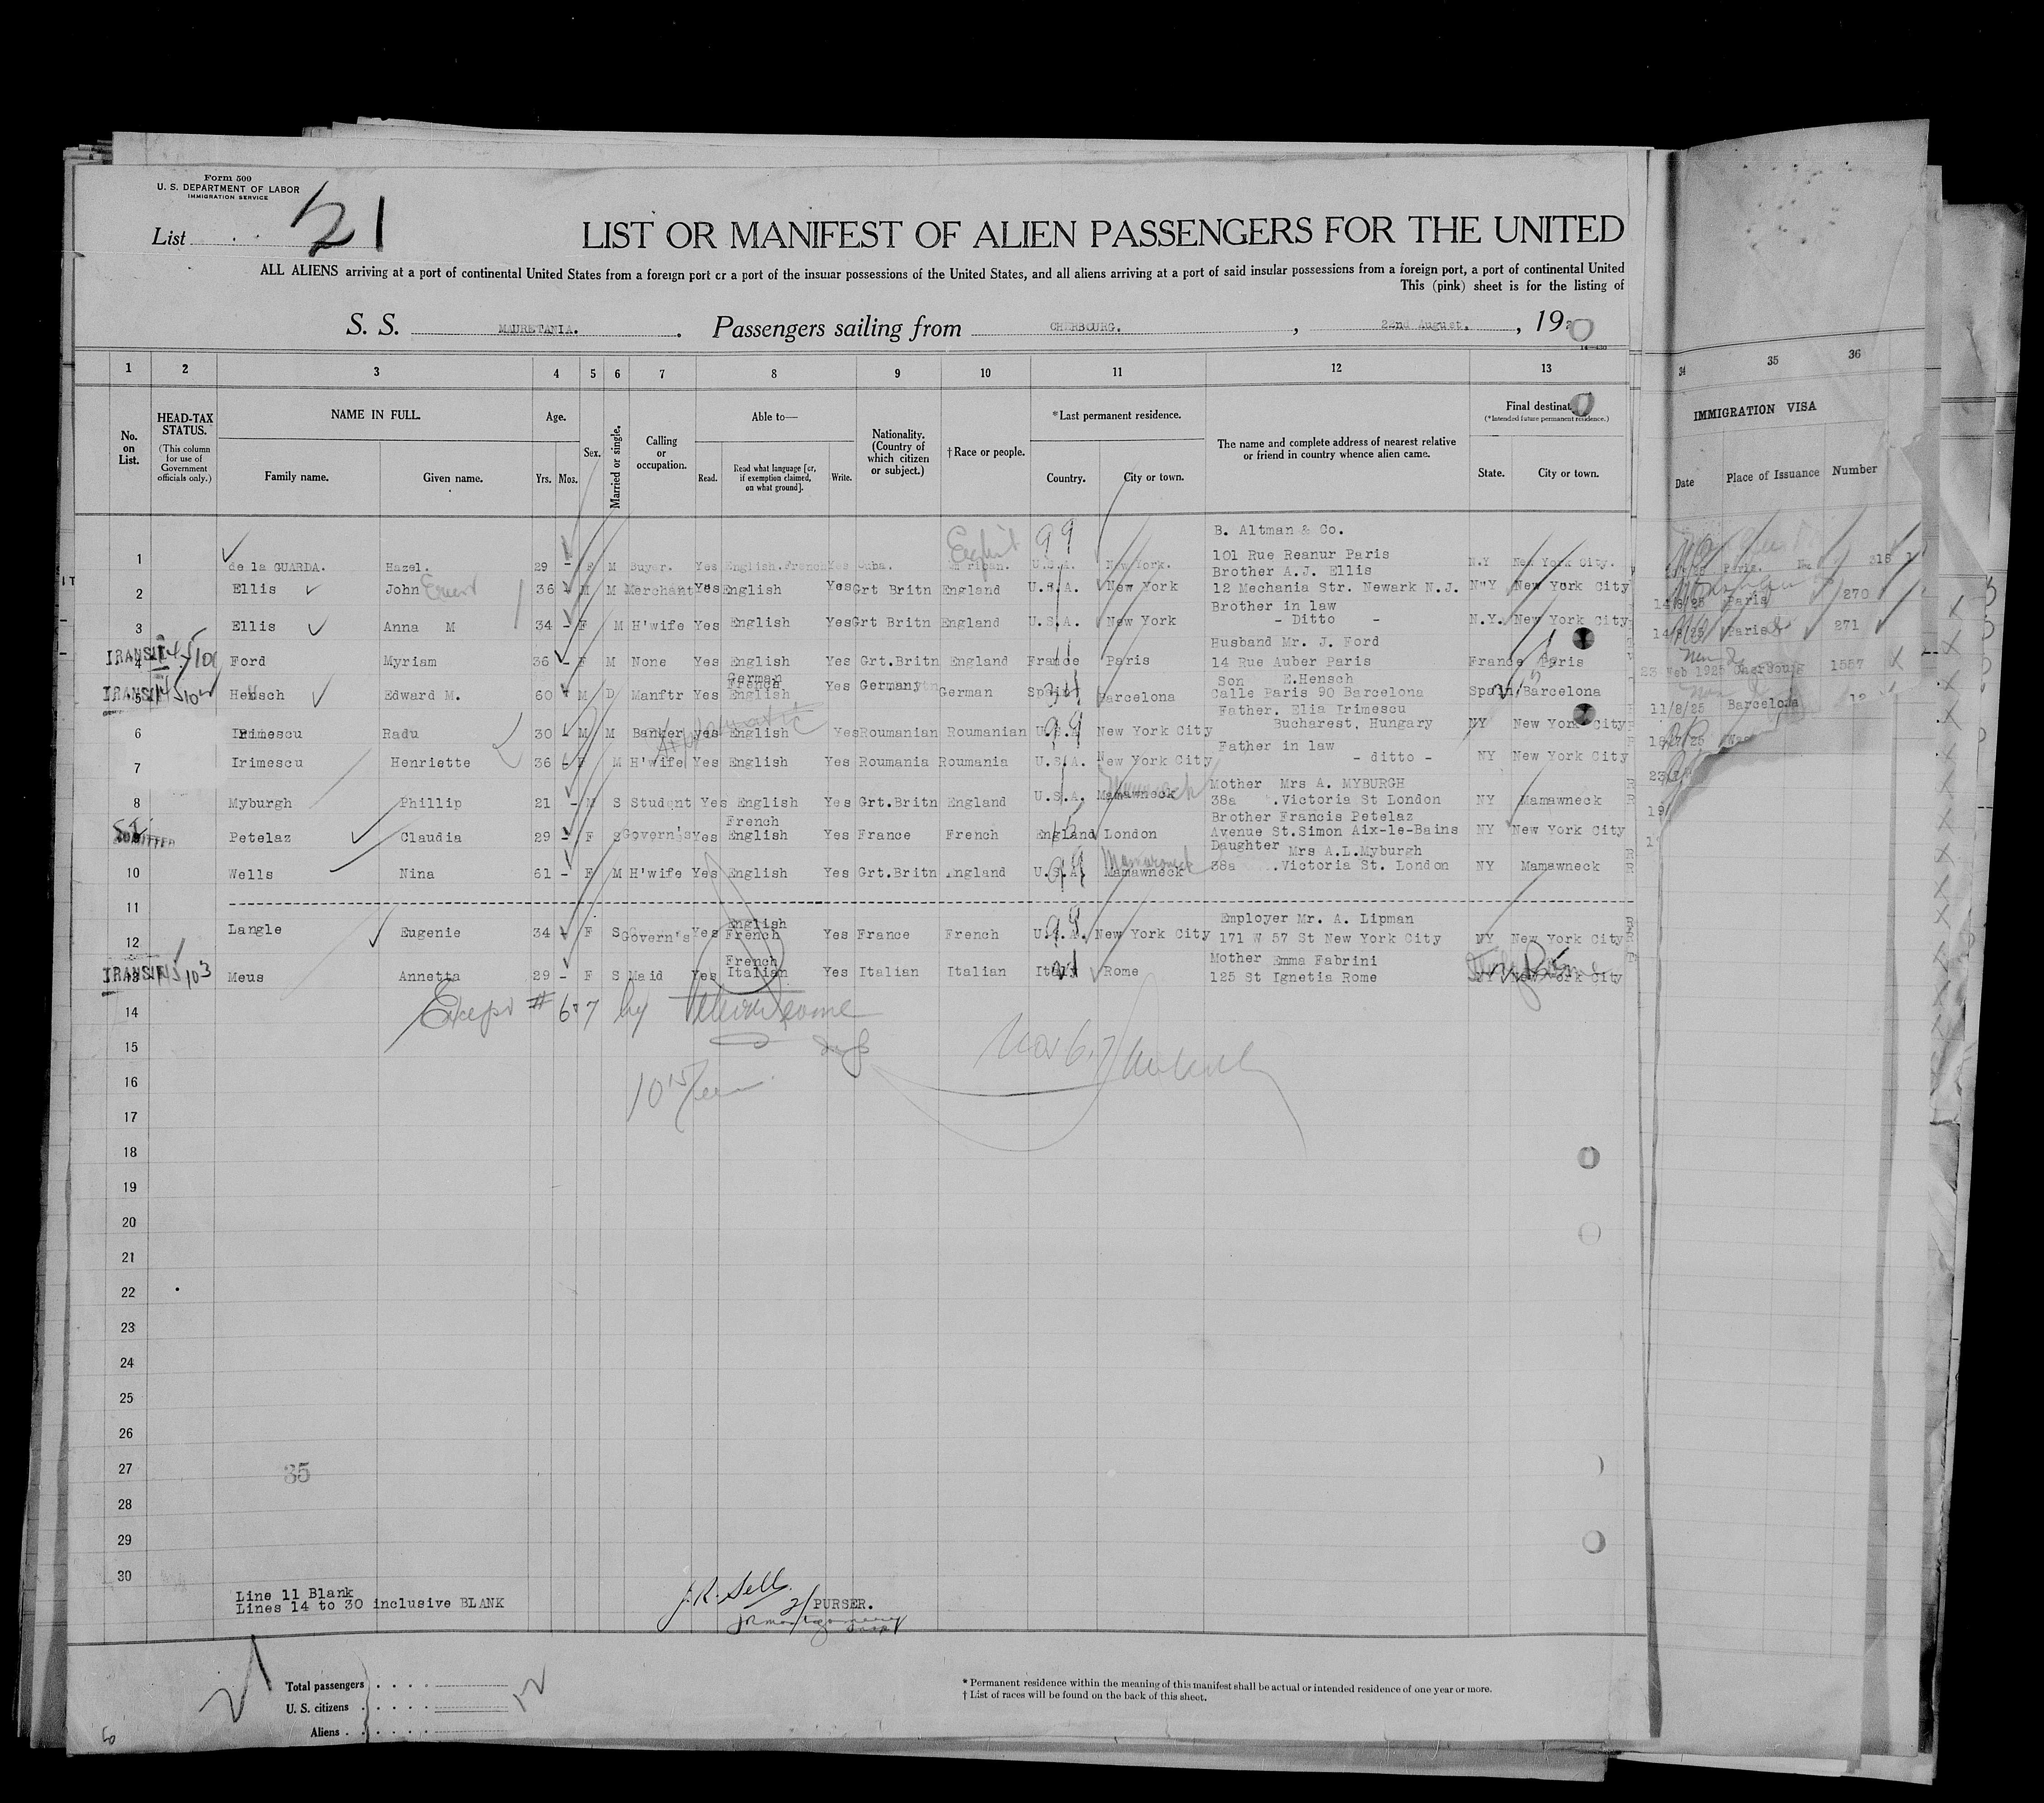 Form 500
U. S. DEPARTMENT OF LABOR
IMMIGRATION SERVICE
List 21
LIST OR MANIFEST OF ALIEN PASSENGERS FOR THE UNITED
ALL ALIENS arriving at a port of continental United States from a foreign port or a port of the insular possessions of the United States, and all aliens arriving at a port of said insular possessions from a foreign port, a port of continental United
This (pink) sheet is for the listing of
S. S. MAURETANIA. Passengers sailing from CHERBOURG. , 22nd August. , 19
1 2 3 4 5 6 7 8 9 10 11 12 13 34 35 36
No. on List.
HEAD-TAX STATUS.
(This column for use of Government officials only.)
NAME IN FULL.
Family name. Given name.
Age.
Yrs. Mos.
Sex.
Married or single.
Calling or occupation.
Able to—
Read. Read what language [or, if exemption claimed, on what ground]. Write.
Nationality. (Country of which citizen or subject.)
† Race or people.
* Last permanent residence.
Country. City or town.
The name and complete address of nearest relative or friend in country whence alien came.
Final destinat
(* Intended future permanent residence.)
State. City or town.
IMMIGRATION VISA
Date Place of Issuance Number
B. Altman & Co.
1 de la GUARDA. Hazel. 29 - F M Buyer. Yes English.French Yes Cuba. U.S.A. New York. 101 Rue Reanur Paris N.Y New York City. Paris. 318
Brother A.J. Ellis
2 Ellis John Ernest 36 M M Merchant Yes English Yes Grt Britn England U.S.A. New York 12 Mechania Str. Newark N.J. N"Y New York City 14/8/25 Paris 270
Brother in law
3 Ellis Anna M 34 - F M H'wife Yes English Yes Grt Britn England U.S.A. New York - Ditto - N.Y. New York City 14/8/25 Paris 271
Husband Mr. J. Ford
TRANSIT 4 Ford Myriam 36 - F M None Yes English Yes Grt.Britn England France Paris 14 Rue Auber Paris France Paris 23 Feb 1925 Cherbourg 1557
German
French Son E.Hensch
TRANSIT 5 Hensch Edward M. 60 M D Manftr Yes English Yes Germany German Spain Barcelona Calle Paris 90 Barcelona Spain Barcelona 11/8/25 Barcelona 12
Father. Elia Irimescu
6 Irimescu Radu 30 M M Banker yes English Yes Roumanian Roumanian U.S.A. New York City Bucharest, Hungary NY New York City
Father in law
7 Irimescu Henriette 36 F M H'wife Yes English Yes Roumania Roumania U.S.A. New York City - ditto - NY New York City
Mother Mrs A. MYBURGH
8 Myburgh Phillip 21 - M S Student Yes English Yes Grt.Britn England U.S.A. Mamawneck 38a .Victoria St London NY Mamawneck
French Brother Francis Petelaz
ADMITTED Petelaz Claudia 29 - F S Govern's Yes English Yes France French England London Avenue St.Simon Aix-le-Bains NY New York City
Daughter Mrs A.L.Myburgh
10 Wells Nina 61 - F M H'wife Yes English Yes Grt.Britn England U.S.A. Mamawneck 38a .Victoria St. London NY Mamawneck
11
English Employer Mr. A. Lipman
12 Langle Eugenie 34 F S Govern's Yes French Yes France French U.S.A. New York City 171 W 57 St New York City NY New York City
French Mother Emma Fabrini
TRANSIT 13 Meus Annetta 29 - F S Maid Yes Italian Yes Italian Italian Italy Rome 125 St Ignetia Rome NY New York City
14 Except # 6+7 by
15
16
17
18
19
20
21
22
23
24
25
26
27 35
28
29
30
Line 11 Blank
Lines 14 to 30 inclusive BLANK
PURSER.
Total passengers
U. S. citizens
Aliens
12
* Permanent residence within the meaning of this manifest shall be actual or intended residence of one year or more.
† List of races will be found on the back of this sheet.